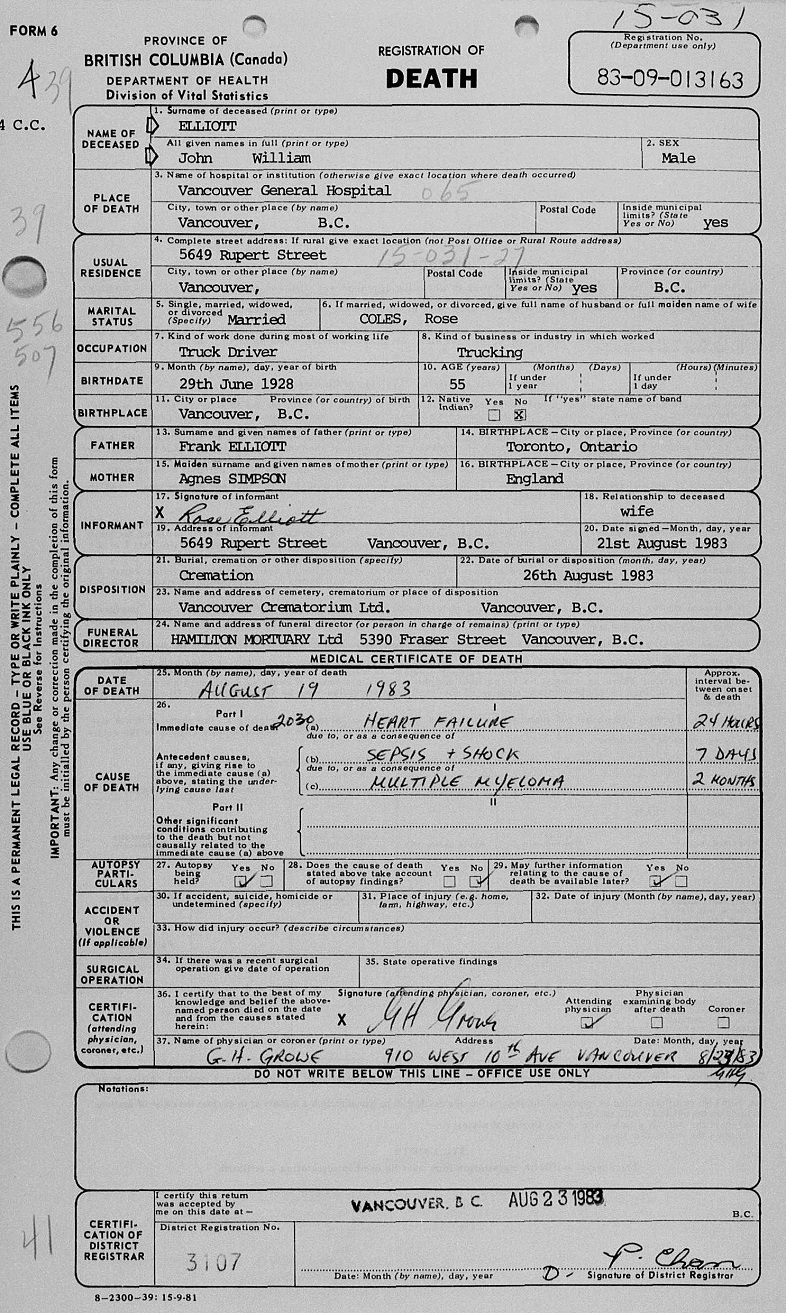 15-031
FORM 6
PROVINCE OF
BRITISH COLUMBIA (Canada)
DEPARTMENT OF HEALTH
Division of Vital Statistics
REGISTRATION OF
DEATH
Registration No.
(Department use only)
83-09-013163
4 39
4 C.C.
39
556
507
41
THIS IS A PERMANENT LEGAL RECORD — TYPE OR WRITE PLAINLY — COMPLETE ALL ITEMS
USE BLUE OR BLACK INK ONLY
See Reverse for Instructions
IMPORTANT: Any change or correction made in the completion of this form
must be initialled by the person certifying the original information.
NAME OF DECEASED
1. Surname of deceased (print or type)
ELLIOTT
All given names in full (print or type)
John William
2. SEX
Male
PLACE OF DEATH
3. Name of hospital or institution (otherwise give exact location where death occurred)
Vancouver General Hospital 065
City, town or other place (by name)
Vancouver, B.C.
Postal Code
Inside municipal limits? (State Yes or No) yes
USUAL RESIDENCE
4. Complete street address: If rural give exact location (not Post Office or Rural Route address)
5649 Rupert Street 15-031-27
City, town or other place (by name)
Vancouver,
Postal Code
Inside municipal limits? (State Yes or No) yes
Province (or country)
B.C.
MARITAL STATUS
5. Single, married, widowed, or divorced (Specify) Married
6. If married, widowed, or divorced, give full name of husband or full maiden name of wife
COLES, Rose
OCCUPATION
7. Kind of work done during most of working life
Truck Driver
8. Kind of business or industry in which worked
Trucking
BIRTHDATE
9. Month (by name), day, year of birth
29th June 1928
10. AGE (years)
55
(Months) (Days)
If under 1 year
(Hours) (Minutes)
If under 1 day
BIRTHPLACE
11. City or place Province (or country) of birth
Vancouver, B.C.
12. Native Indian? Yes No
If "yes" state name of band
FATHER
13. Surname and given names of father (print or type)
Frank ELLIOTT
14. BIRTHPLACE — City or place, Province (or country)
Toronto, Ontario
MOTHER
15. Maiden surname and given names of mother (print or type)
Agnes SIMPSON
16. BIRTHPLACE — City or place, Province (or country)
England
INFORMANT
17. Signature of informant
X Rose Elliott
18. Relationship to deceased
wife
19. Address of informant
5649 Rupert Street Vancouver, B.C.
20. Date signed — Month, day, year
21st August 1983
DISPOSITION
21. Burial, cremation or other disposition (specify)
Cremation
22. Date of burial or disposition (month, day, year)
26th August 1983
23. Name and address of cemetery, crematorium or place of disposition
Vancouver Crematorium Ltd. Vancouver, B.C.
FUNERAL DIRECTOR
24. Name and address of funeral director (or person in charge of remains) (print or type)
HAMILTON MORTUARY Ltd 5390 Fraser Street Vancouver, B.C.
MEDICAL CERTIFICATE OF DEATH
DATE OF DEATH
25. Month (by name), day, year of death
AUGUST 19 1983
Approx. interval between onset & death
CAUSE OF DEATH
26.
Part I
I
Immediate cause of death 2030 (a) HEART FAILURE 24 HOURS
due to, or as a consequence of
Antecedent causes, if any, giving rise to the immediate cause (a) above, stating the underlying cause last
(b) SEPSIS + SHOCK 7 DAYS
due to, or as a consequence of
(c) MULTIPLE MYELOMA 2 MONTHS
Part II
II
Other significant conditions contributing to the death but not causally related to the immediate cause (a) above
AUTOPSY PARTICULARS
27. Autopsy being held? Yes No
28. Does the cause of death stated above take account of autopsy findings? Yes No
29. May further information relating to the cause of death be available later? Yes No
ACCIDENT OR VIOLENCE (If applicable)
30. If accident, suicide, homicide or undetermined (specify)
31. Place of injury (e.g. home, farm, highway, etc.)
32. Date of injury (Month (by name), day, year)
33. How did injury occur? (describe circumstances)
SURGICAL OPERATION
34. If there was a recent surgical operation give date of operation
35. State operative findings
CERTIFICATION (attending physician, coroner, etc.)
36. I certify that to the best of my knowledge and belief the above-named person died on the date and from the causes stated herein:
Signature (attending physician, coroner, etc.)
X GH Growe
Attending physician
Physician examining body after death
Coroner
37. Name of physician or coroner (print or type) Address Date: Month, day, year
G. H. GROWE 910 WEST 10th AVE VANCOUVER 8/23/83
GHG
DO NOT WRITE BELOW THIS LINE — OFFICE USE ONLY
Notations:
CERTIFICATION OF DISTRICT REGISTRAR
I certify this return was accepted by me on this date at —
VANCOUVER, B C. AUG 23 1983
B.C.
District Registration No.
3107
Date: Month (by name), day, year
D- P. Chan
Signature of District Registrar
8-2300-39: 15-9-81